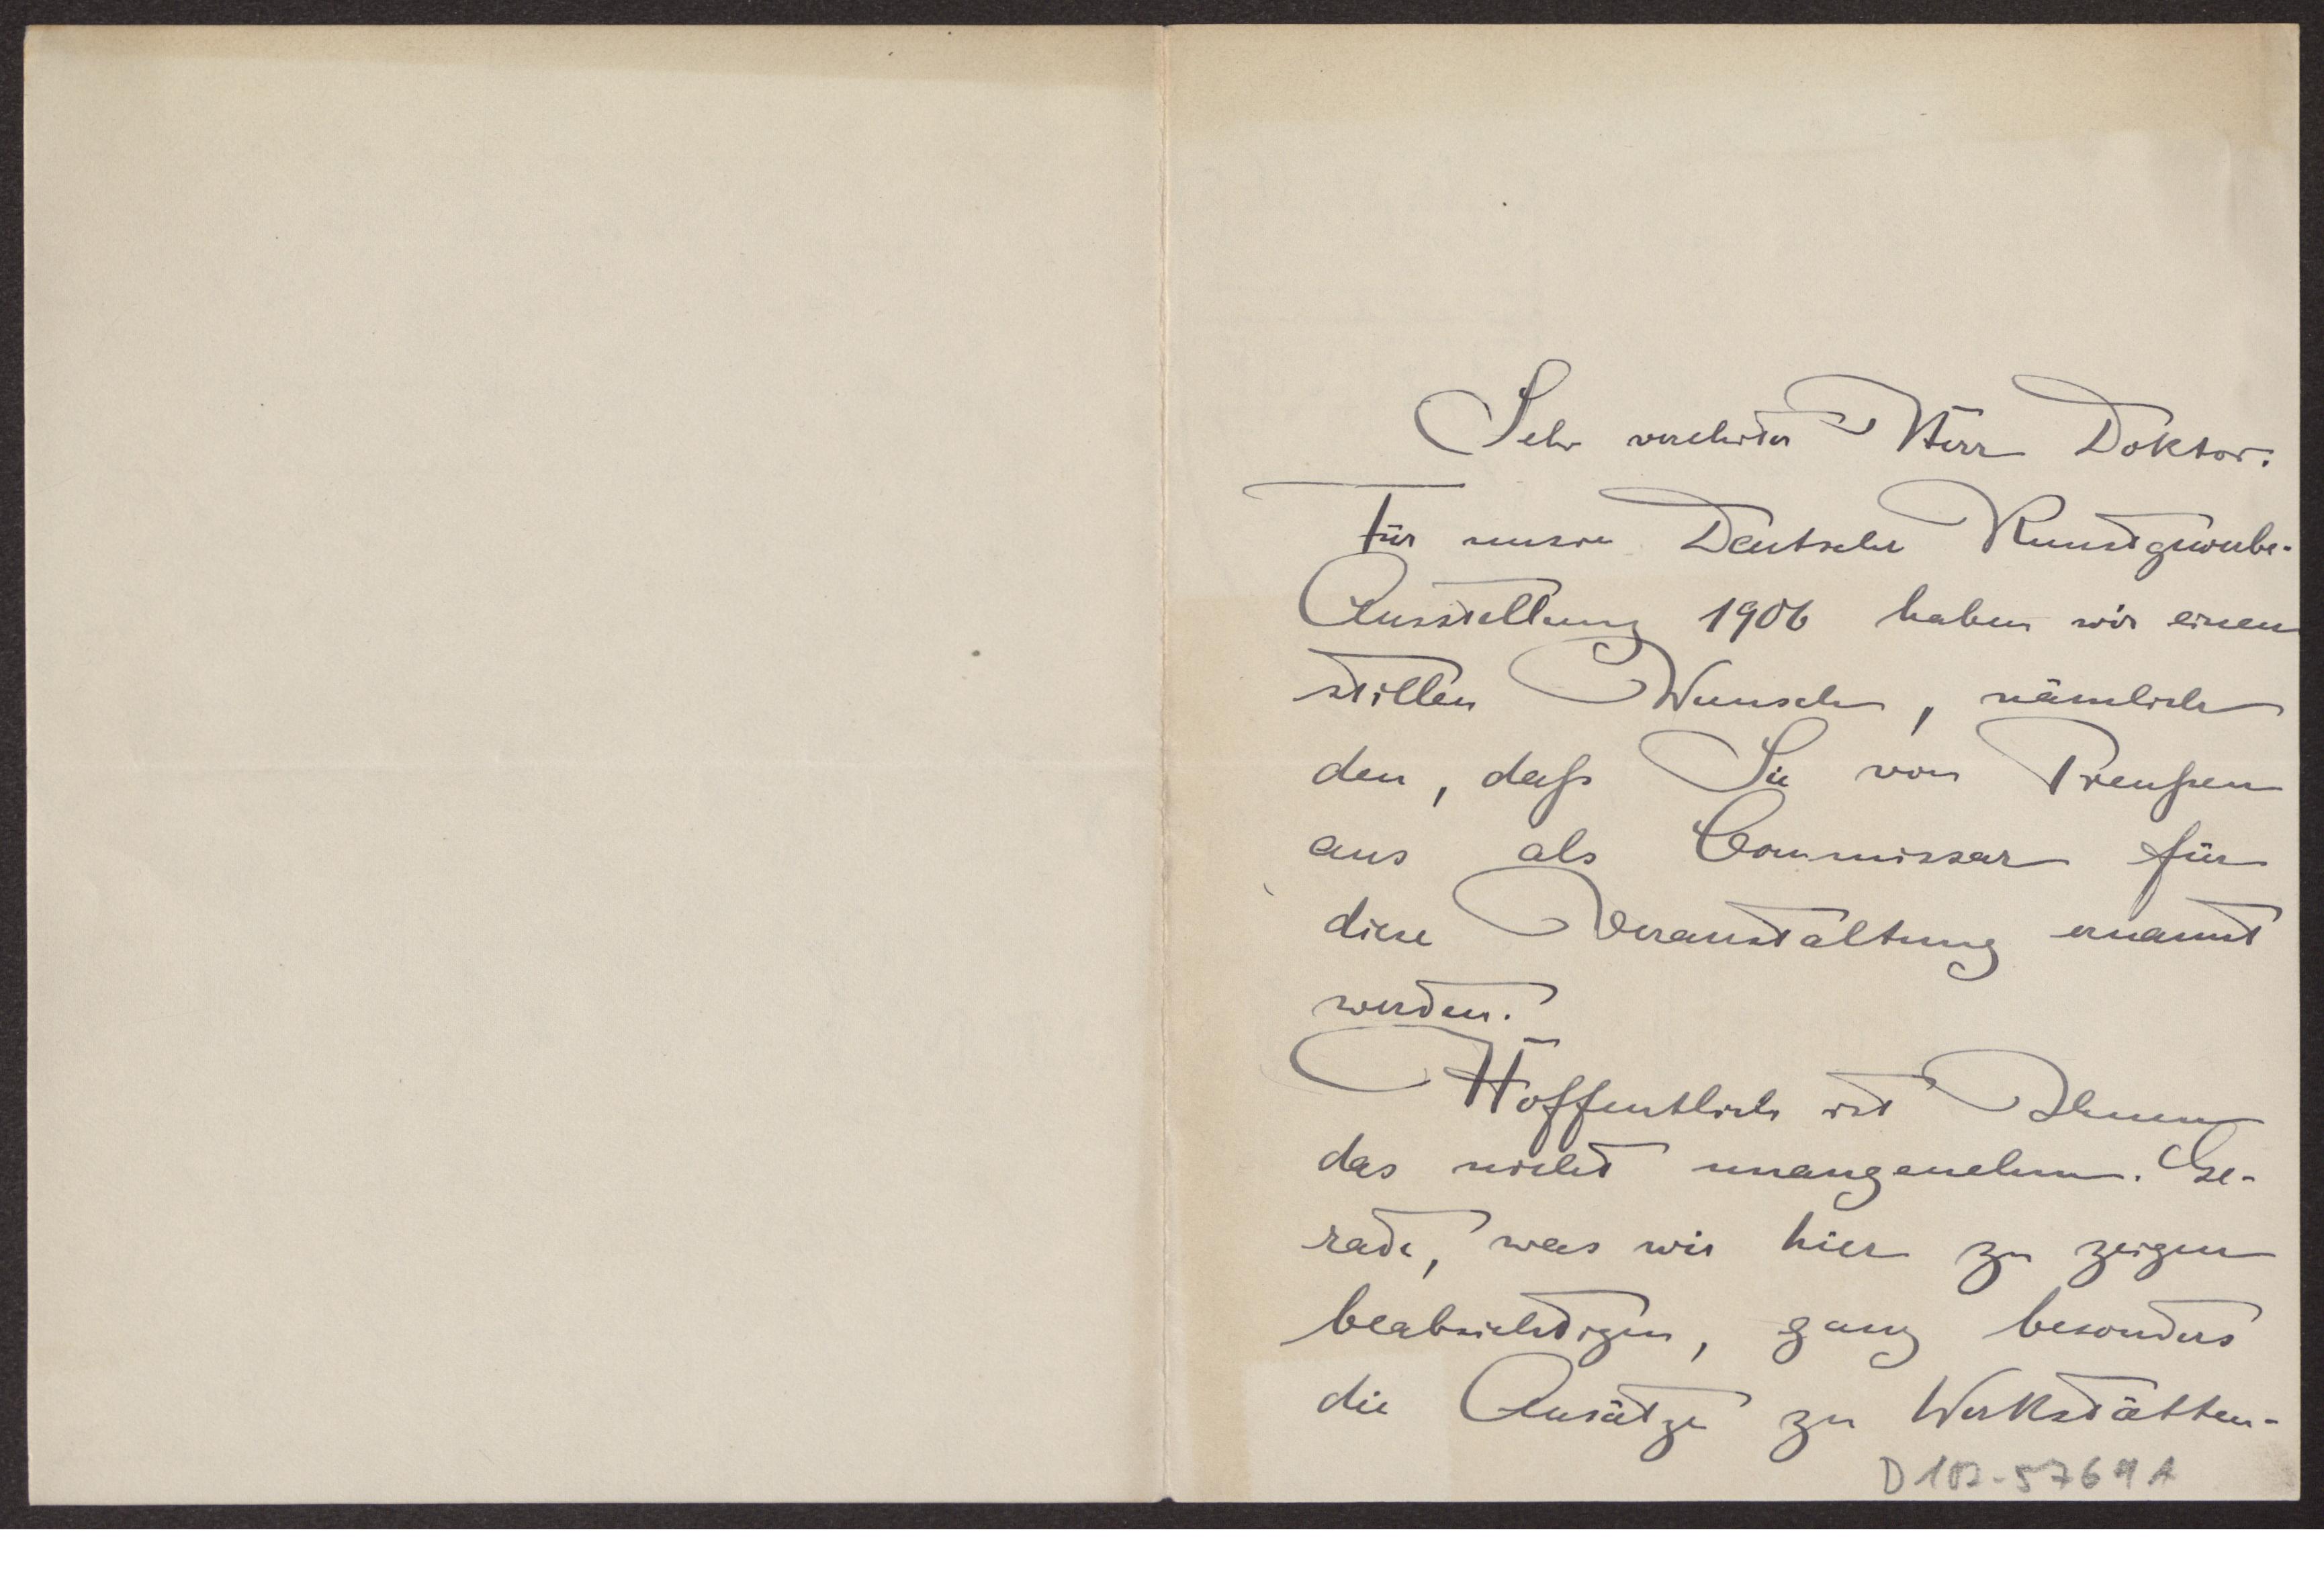 Sehr verehrter Herr Doktor:
Für unsere Deutsche Kunstgewerbe-
Ausstellung 1906 haben wir einen
stillen Wunsch, nämlich
den, daß Sie von Preußen
aus als Commissar für
diese Veranstaltung ernannt
werden.
Hoffentlich ist Ihnen
das nicht unangenehm. Ge-
rade, was wir hier zu zeigen
beabsichtigen, ganz besonders
die Ansätze zu Werkstätten-